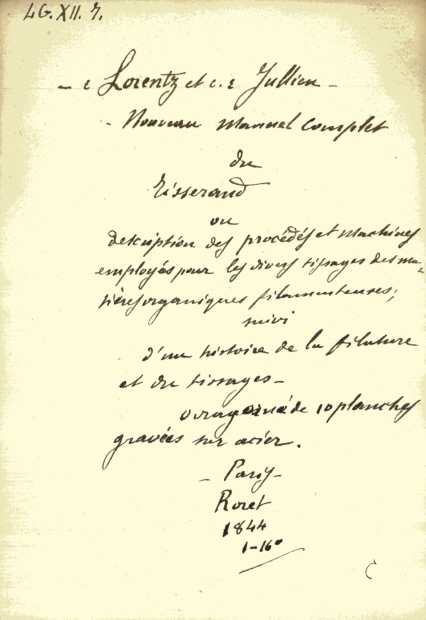 LG.XII.7.
- c Lorentz et c. e Jullien -
- Nouveau Manuel Complet
du
Tisserand
ou
description des procédés et Machines
employés pour les divers tissages des ma-
tières organiques filamenteuses;
suivi
d'une histoire de la filature
et du tissages -
ouvrage orné de 10 planches
gravées sur acier.
- Paris -
Roret
1844
1-16°